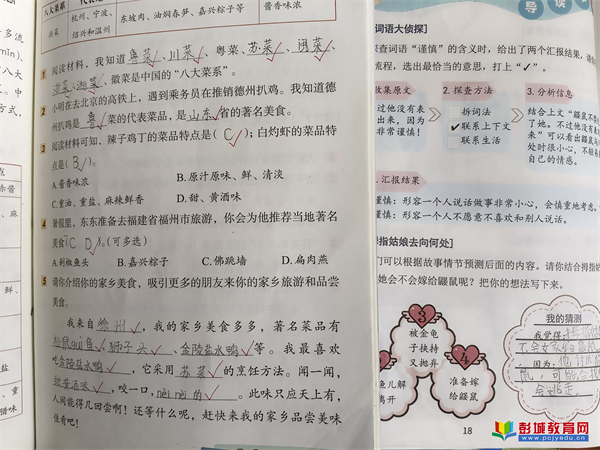 八大菜系
浙菜
杭州、宁波、
绍兴和温州
东坡肉、油焖春笋、嘉兴粽子等
酱香味浓
1 阅读材料，我知道鲁菜、川菜、粤菜、苏菜、闽菜、
浙菜、湘菜、徽菜是中国的“八大菜系”。
2 小明在去北京的高铁上，遇到乘务员在推销德州扒鸡。我知道德
州扒鸡是鲁菜的代表菜品，是山东省的著名美食。
3 阅读材料可知，辣子鸡丁的菜品特点是(C)；白灼虾的菜品特
点是(B)。
A.酱香味浓 B.原汁原味、鲜、清淡
C.重油、重盐、麻辣鲜香 D.甜、黄酒味
4 暑假里，东东准备去福建省福州市旅游，你会为他推荐当地著名
美食(C D)。(可多选)
A.剁椒鱼头 B.嘉兴粽子 C.佛跳墙 D.扁肉燕
5 请你介绍你的家乡美食，吸引更多的朋友来你的家乡旅游和品尝
美食。
我来自徐州，我的家乡美食多多，著名菜品有
狮子头、金陵盐水鸭等。我最喜欢
吃金陵盐水鸭，它采用苏菜的烹饪方法。闻一闻，
，咬一口，nèn nèn的。此味只应天上有，
人间能得几回尝啊！还等什么呢，赶快来我的家乡品尝美味
佳肴吧！
导读
词语大侦探】
查词语“谨慎”的含义时，给出了两个汇报结果，请你
流程，选出最恰当的意思，打上“✓”。
收集原文
2.探查方法
3.分析信息
过他没有表
出来，因为
非常谨慎！
拆词法
✓联系上下文
联系生活
结合上文“鼹鼠不
了她。不过他没有表
来”可以看出鼹鼠与
处时很小心，不轻易
自己的情感。
汇报结果
谨慎：形容一个人说话做事非常小心，会慎重地考虑。
谨慎：形容一个人不愿意不喜欢和别人说话。
拇指姑娘去向何处】
们可以根据故事情节预测后面的内容。请你结合拇指
她会不会嫁给鼹鼠呢？把你的想法写下来。
3
被金龟
子挟持
又抛弃
4
准备嫁
给鼹鼠
鱼儿解
离开
我的猜测
我觉得：拇指姑娘
不会
因为：
会逃走。
18
彭城教育网
www.pcjyedu.cn